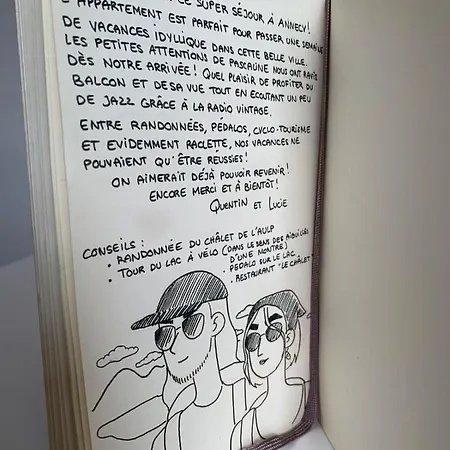 CE SUPER SÉJOUR À ANNECY!
L'APPARTEMENT EST PARFAIT POUR PASSER UNE SEMAINE
DE VACANCES IDYLLIQUE DANS CETTE BELLE VILLE.
LES PETITES ATTENTIONS DE PASCALINE NOUS ONT RAVIS
DÈS NOTRE ARRIVÉE! QUEL PLAISIR DE PROFITER DU
BALCON ET DE SA VUE TOUT EN ECOUTANT UN PEU
DE JAZZ GRÂCE À LA RADIO VINTAGE.
ENTRE RANDONNÉES, PÉDALOS, CYCLO-TOURISME
ET EVIDEMMENT RACLETTE, NOS VACANCES NE
POUVAIENT QU'ÊTRE RÉUSSIES!
ON AIMERAIT DÉJÀ POUVOIR REVENIR!
ENCORE MERCI ET À BIENTÔT!
QUENTIN ET LUCIE
CONSEILS:
• RANDONNÉE DU CHÂLET DE L'AULP
• TOUR DU LAC À VÉLO (DANS LE SENS DES AIGUILLES
D'UNE MONTRE)
• PEDALO SUR LE LAC
• RESTAURANT "LE CHÂLET"